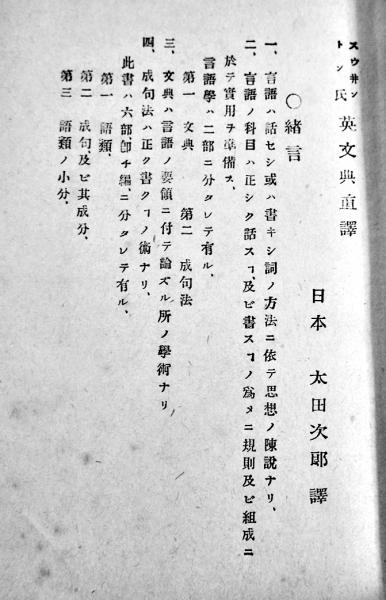 スウ井ントン氏 英文典直譯
日本 太田次郎 譯
〇緒言
一、言語ハ話セシ或ハ書キシ詞ノ方法ニ依テ思想ノ陳說ナリ、
二、言語ノ科目ハ正シク話スヿ、及ビ書スヿノ爲メニ規則及ビ組成ニ
於テ實用ヲ準備ス、
言語學ハ二部ニ分タレテ有ル、
第一 文典 第二 成句法
三、文典ハ言語ノ要領ニ付テ論ズル所ノ學術ナリ
四、成句法ハ正ク書クヿノ術ナリ、
此書ハ六部、卽チ編、ニ分タレテ有ル、
第一 語類、
第二 成句、及ビ其成分、
第三 語類ノ小分、